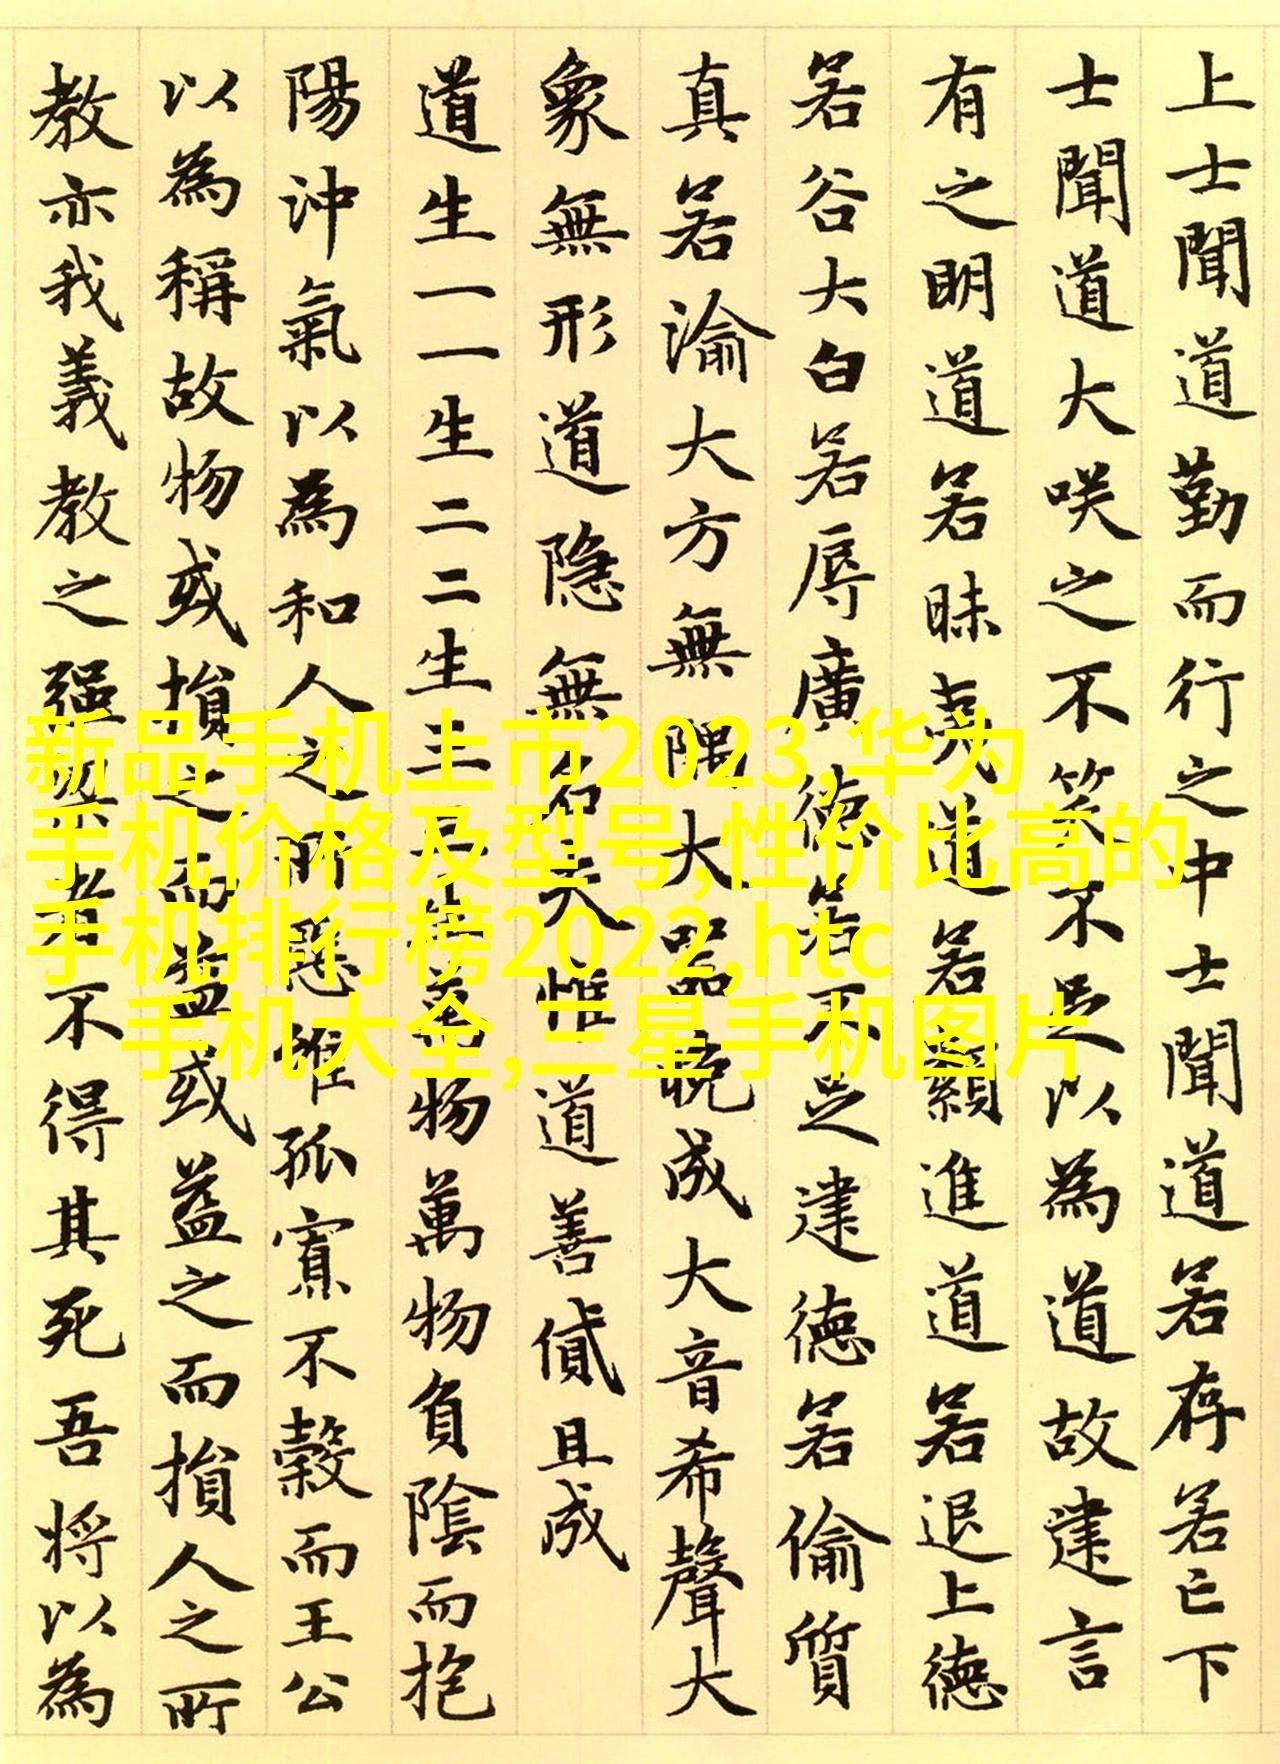 上士聞道勤而行之中士聞道若存若亡下
士聞道大咲之不笑不足以為道故建言
有之明道若昧夷道若纇進道若退上德
若谷大白若辱廣德若不足建德若偷質
真若渝大方無隅大器晚成大音希聲大
象無形道隐無名夫惟道善貸且成
道生一一生二二生三三生萬物萬物負陰而抱
陽沖氣以為和人之所惡惟孤寡不穀而王公
以為稱故物或損之而益或益之而損人之所
教亦我義教之强梁者不得其死吾将以為
新品手机上市2023,华为
手机价格及型号,性价比高的
手机排行榜2022,htc
手机大全,三星手机图片